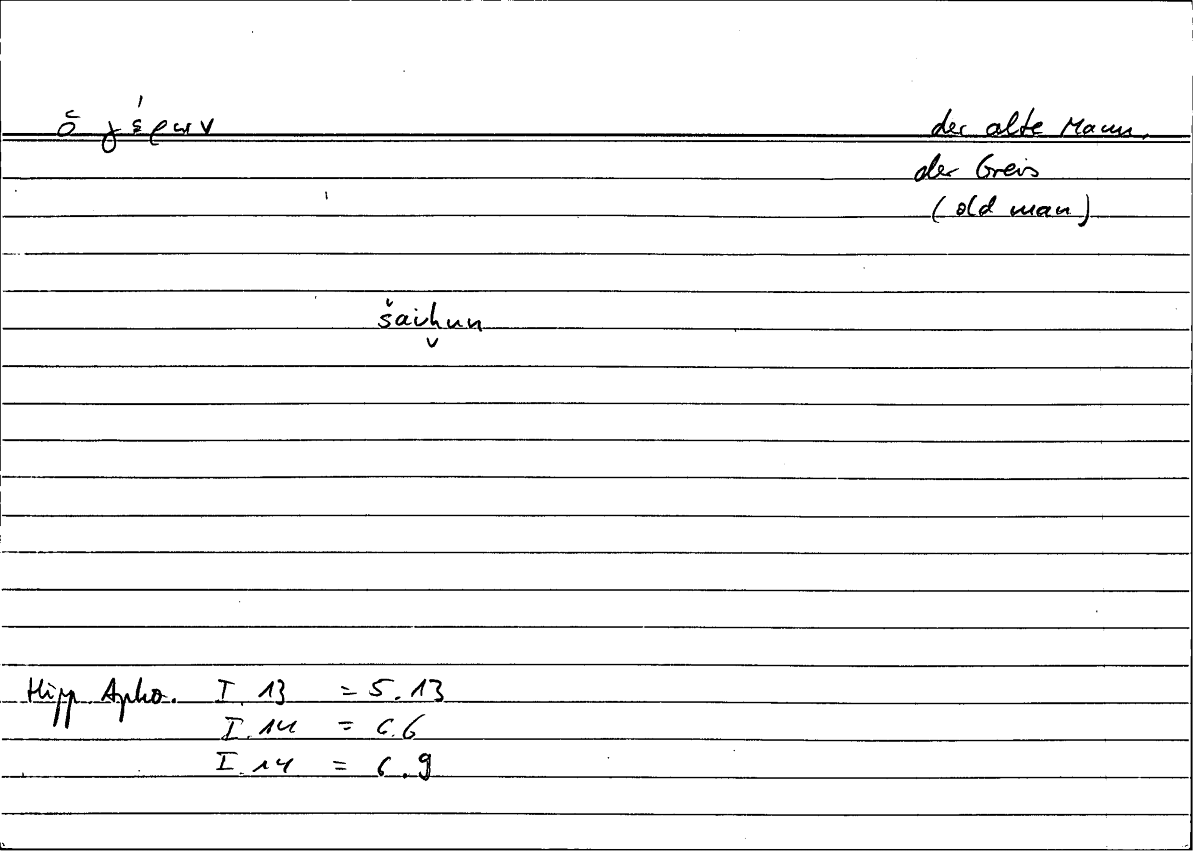 ὁ γέρων der alte Mann,
der Greis
(old man)
šaiḫun
Hipp Apho. I. 13 = 5.13
I. 14 = 6.6
I. 14 = 6.9